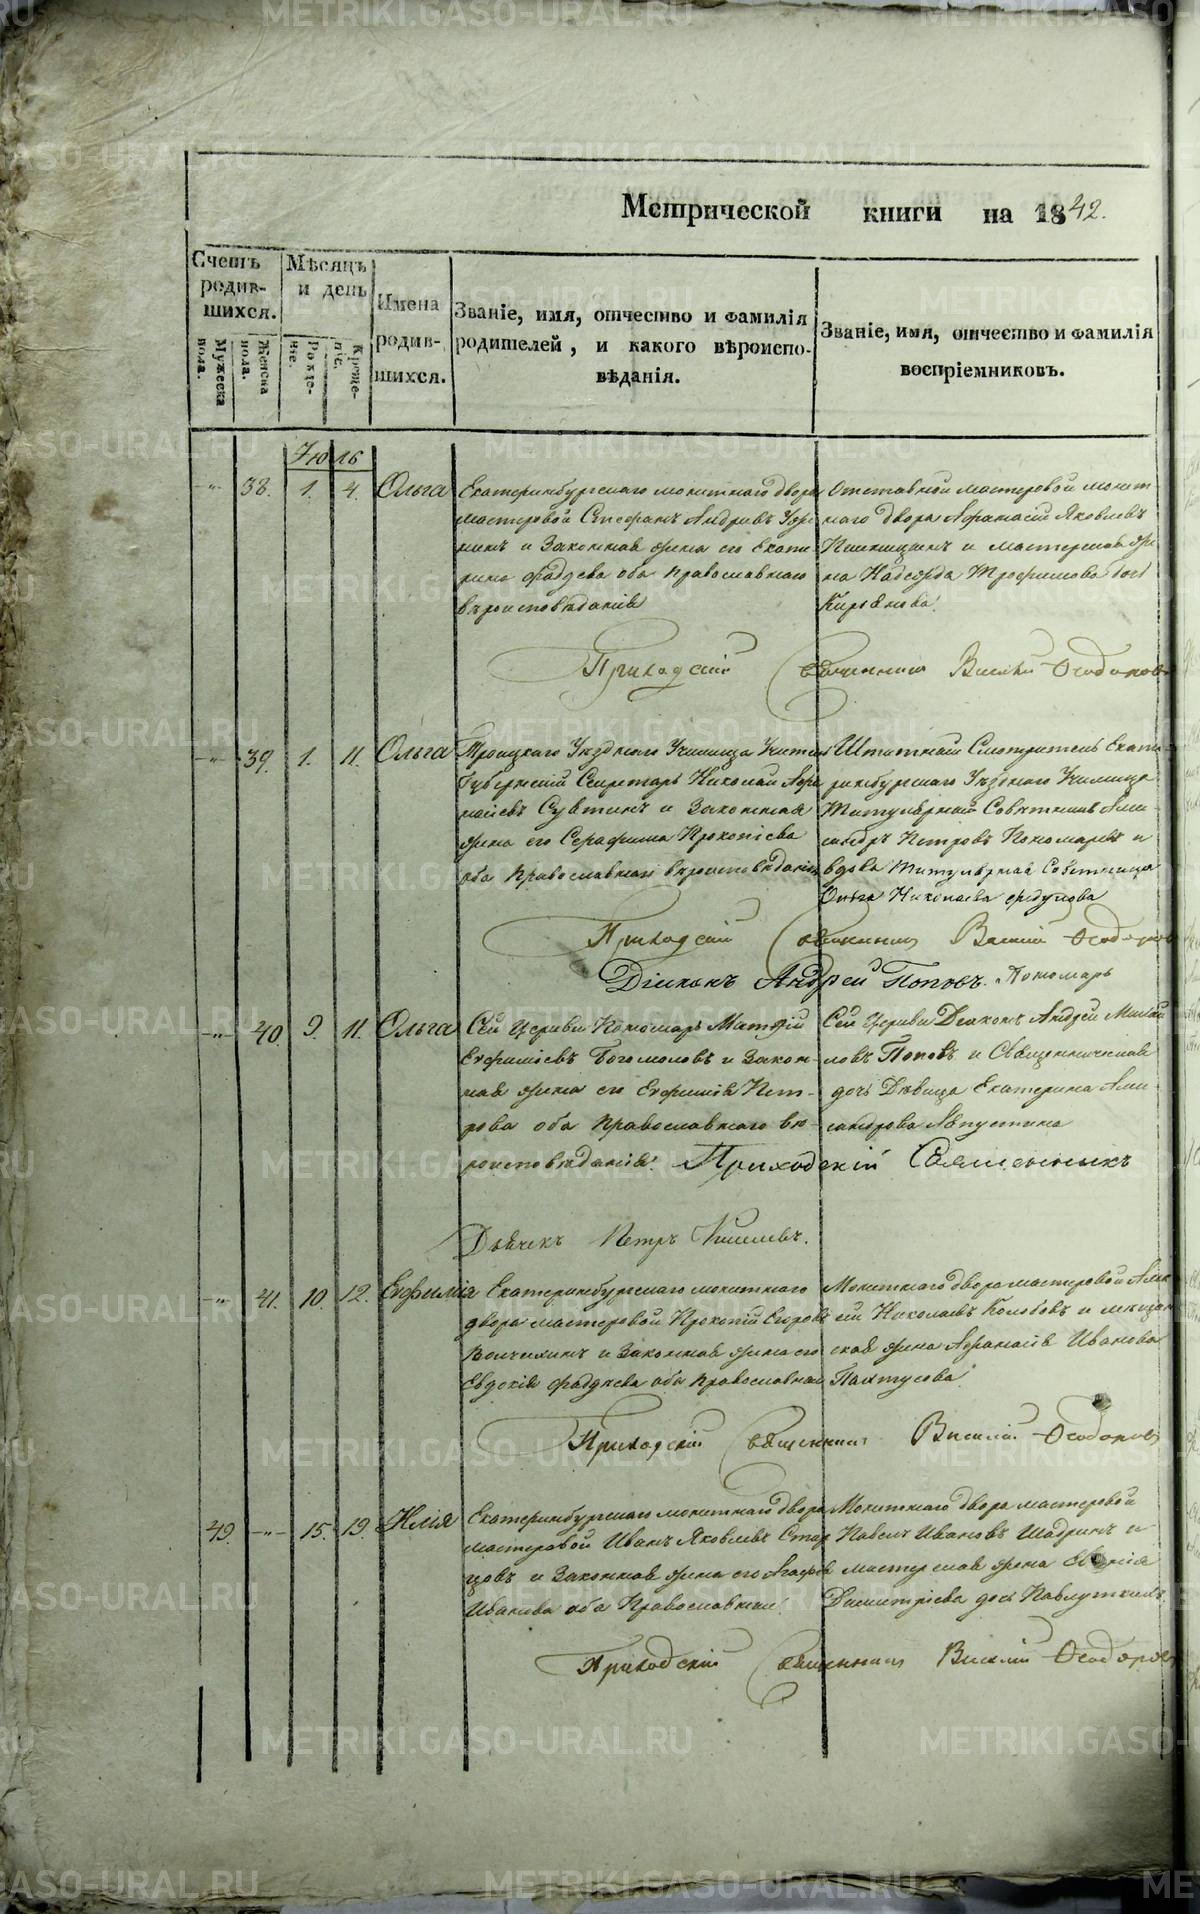 Метрической книги на 1842.
Счетъ родившихся.
Мѣсяцъ и день
Имена родившихся.
Званіе, имя, отчество и фамилія родителей, и какого вѣроисповѣданія.
Званіе, имя, отчество и фамилія воспріемниковъ.
Мужеска пола.
Женска пола.
Рожденіе.
Крещеніе.
Іюль
-"- 38. 1. 4. Ольга
Екатеринбургскаго монетнаго двора
мастеровой Стефанъ Андреевъ
и законная жена его Екате
рина Фадѣева оба православнаго
вѣроисповѣданія
Отставной мастеровой монет
наго двора Афанасій Яковлевъ
и мастерская же
на Надежда Трофимова дочь
Кирьянова.
Приходскій Священникъ Василій Ѳеодоровъ
-"- 39. 1. 11. Ольга
Троицкаго Уѣзднаго Училища Учитель
Губернскій Секретарь Николай Афа
насьевъ и законная
жена его Серафима Прокопіева
оба православнаго вѣроисповѣданія
Штатный Смотритель Екате
ринбургскаго Уѣзднаго Училища
Титулярный Совѣтникъ Алек
сандръ Петровъ Пономаревъ и
вдова Титулярная Совѣтница
Ольга Николаева Федулова
Приходскій Священникъ Василій Ѳеодоровъ
Діаконъ Андрей Поповъ. Пономарь
-"- 40. 9. 11. Ольга
Сей Церкви Пономарь Матфій
Евфиміевъ Богомоловъ и закон
ная жена его Евфимія Пет-
рова оба православнаго вѣ-
роисповѣданія.
Сей Церкви Діаконъ Андрей Михай
ловъ Поповъ и Священническая
дочь Дѣвица Екатерина Алек
сандрова
Приходскій Священникъ
Дьячекъ Петръ Киселевъ.
-"- 41. 10. 12. Евфимія
Екатеринбургскаго монетнаго
двора мастеровой Прокопій Егоровъ
Волчихинъ и законная жена его
Евдокія Фадѣева оба православнаго
Монетнаго двора мастеровой Алек
сѣй Николаевъ Колобовъ и мѣщан
ская жена Афанасія Иванова
Пахтусова
Приходскій Священникъ Василій Ѳеодоровъ
49 -"- 15. 19. Илія
Екатеринбургскаго монетнаго двора
мастеровой Иванъ Яковлевъ Стар
цовъ и законная жена его Агафія
Иванова оба православнаго
Монетнаго двора мастеровой
Павелъ Ивановъ Шадринъ и
мастерская жена
Димитріева дочь
Приходскій Священникъ Василій Ѳеодоровъ
METRIKI.GASO-URAL.RU